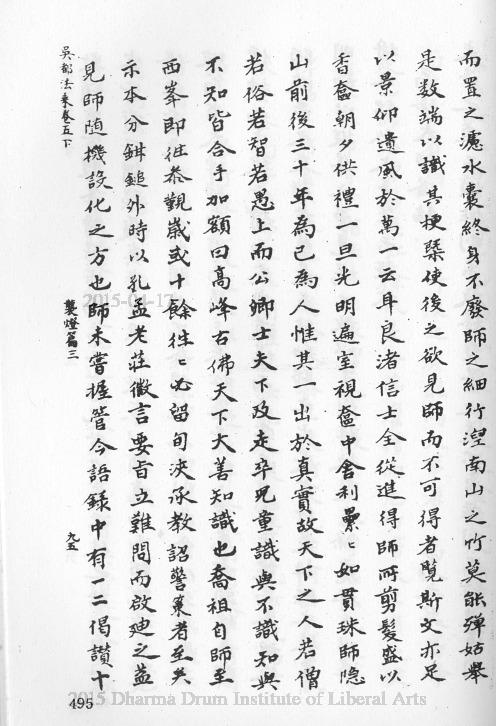 而置之濾水囊終身不廢師之細行涅南山之竹莫能殫姑舉
是数端以識其梗槩使後之欲見師而不可得者覧斯文亦足
以景仰遺風於萬一云耳良渚信士全從進得師所剪髮盛以
香奩朝夕供禮一旦光明遍室視奩中舍利纍〻如貫珠師隐
山前後三十年為已為人惟其一出於真實故天下之人若僧
若俗若智若愚上而公卿士夫下及走卒児童識與不識知與
不知皆合手加額曰髙峰古佛天下大善知識也喬祖自師至
西峯即徃叅覲嵗或十餘徃〻必留旬浹承教詔警䇿者至矣
示本分鉗鎚外時以孔孟老莊微言要旨立難問而啟廸之葢
見師随機設化之方也師未嘗握管今語録中有一二偈讃十
吳都法乗巻五下
襲燈篇三
九五
495
2015-04-17
2015 Dharma Drum Institute of Liberal Arts